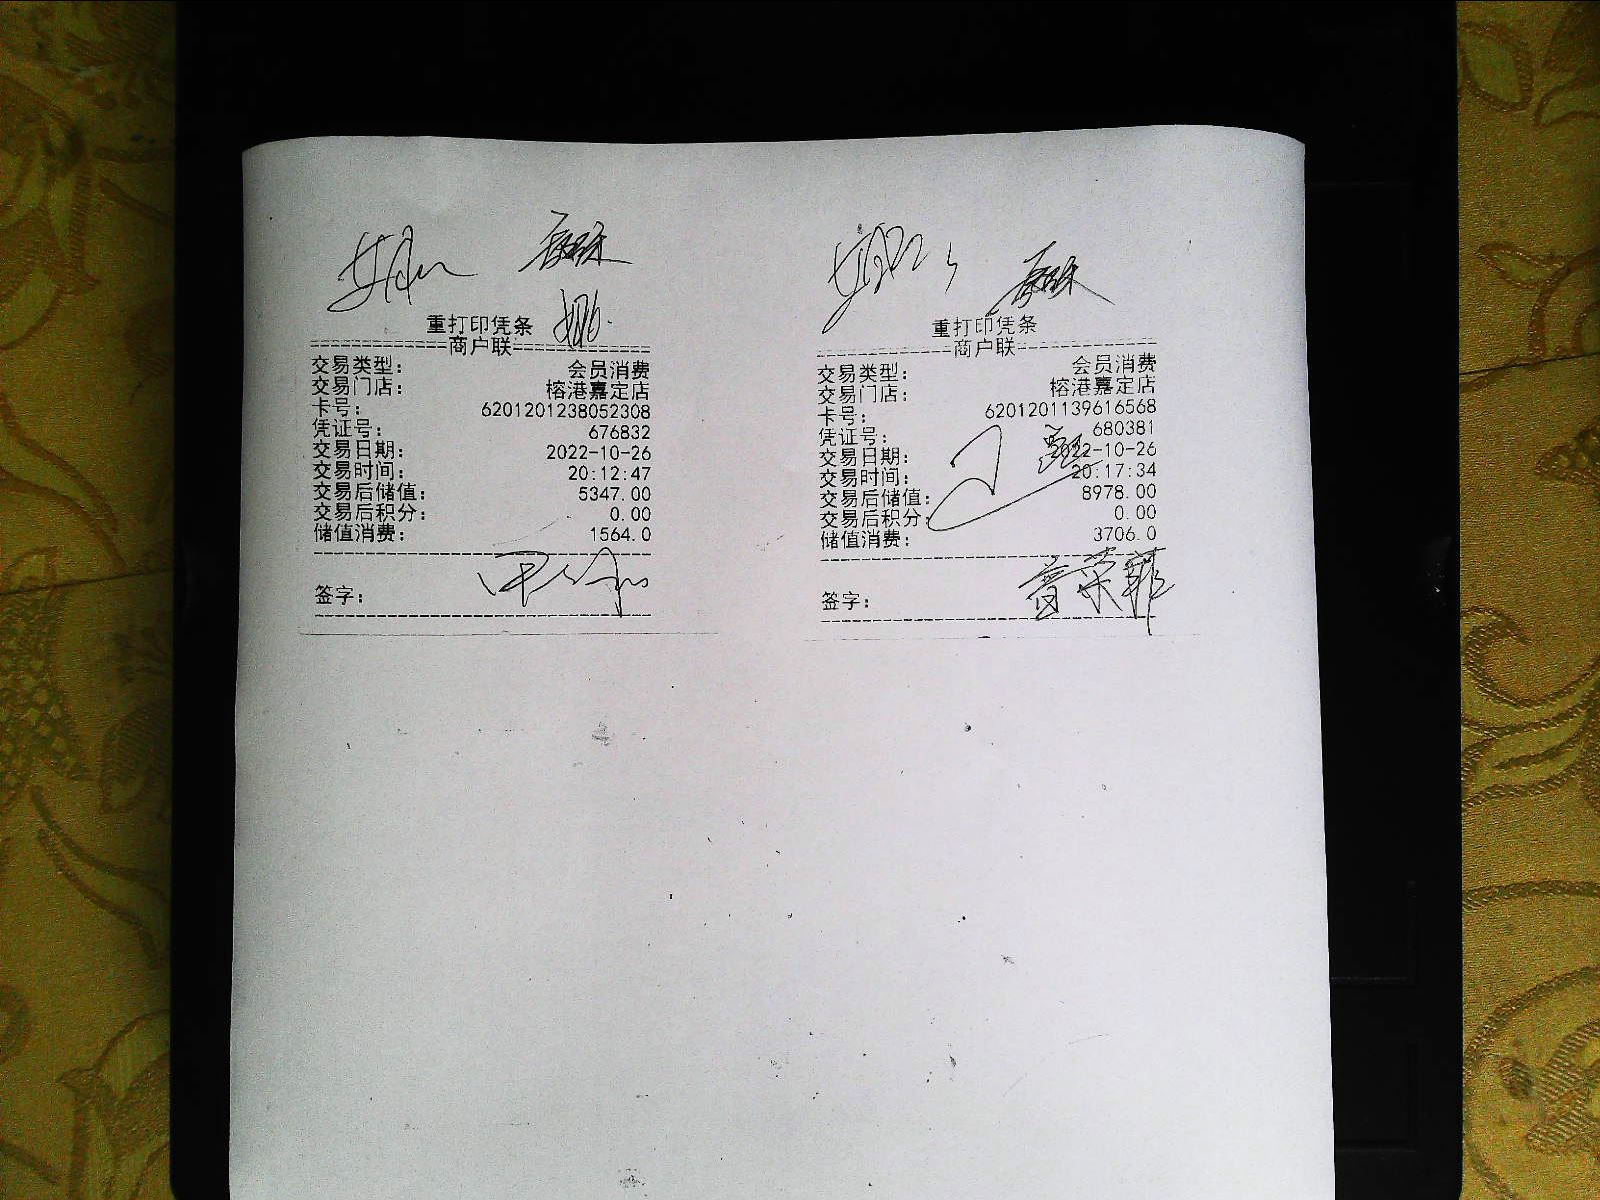 重打印凭条
商户联
交易类型： 会员消费
交易门店： 榕港嘉定店
卡号： 6201201238052308
凭证号： 676832
交易日期： 2022-10-26
交易时间： 20:12:47
交易后储值： 5347.00
交易后积分： 0.00
储值消费： 1564.0
签字：
重打印凭条
商户联
交易类型： 会员消费
交易门店： 榕港嘉定店
卡号： 6201201139616568
凭证号： 680381
交易日期： 2022-10-26
交易时间： 20:17:34
交易后储值： 8978.00
交易后积分： 0.00
储值消费： 3706.0
签字：